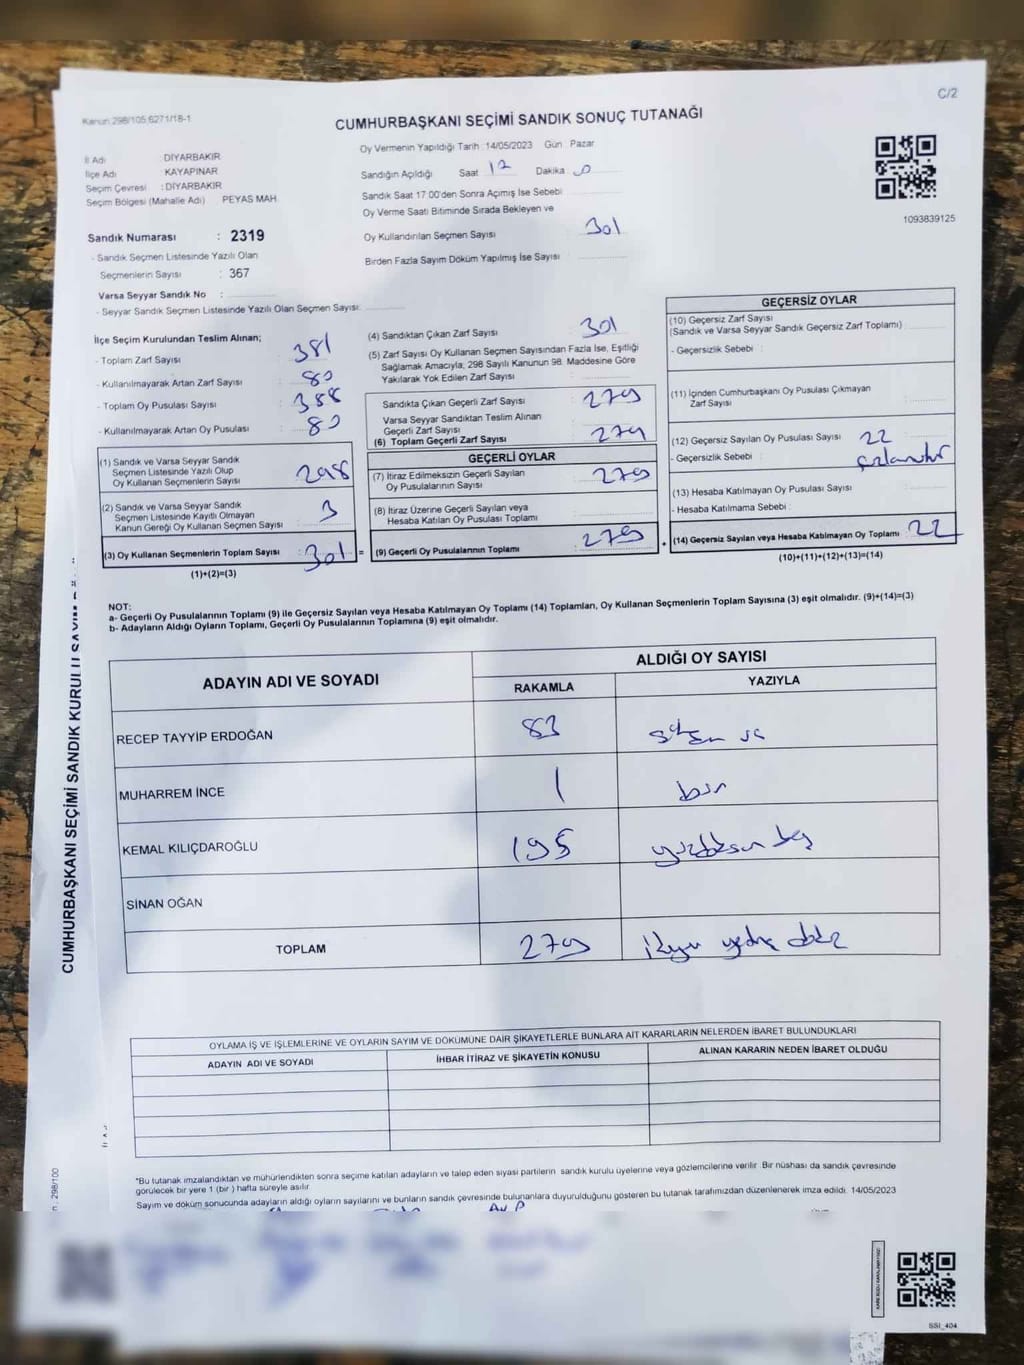 C/2
Kanun 298/105,6271/18-1
CUMHURBAŞKANI SEÇİMİ SANDIK SONUÇ TUTANAĞI
İl Adı DİYARBAKIR
İlçe Adı KAYAPINAR
Seçim Çevresi : DİYARBAKIR
Seçim Bölgesi (Mahalle Adı) PEYAS MAH.
Sandık Numarası : 2319
- Sandık Seçmen Listesinde Yazılı Olan
Seçmenlerin Sayısı : 367
Varsa Seyyar Sandık No :
- Seyyar Sandık Seçmen Listesinde Yazılı Olan Seçmen Sayısı:
Oy Vermenin Yapıldığı Tarih : 14/05/2023 Gün Pazar
Sandığın Açıldığı Saat 17 Dakika 0
Sandık Saat 17:00'den Sonra Açımış İse Sebebi
Oy Verme Saati Bitiminde Sırada Bekleyen ve
Oy Kullandırılan Seçmen Sayısı 301
Birden Fazla Sayım Döküm Yapılmış İse Sayısı :
1093839125
İlçe Seçim Kurulundan Teslim Alınan;
- Toplam Zarf Sayısı : 381
- Kullanılmayarak Artan Zarf Sayısı : 80
- Toplam Oy Pusulası Sayısı : 388
- Kullanılmayarak Artan Oy Pusulası : 80
(1) Sandık ve Varsa Seyyar Sandık
Seçmen Listesinde Yazılı Olup
Oy Kullanan Seçmenlerin Sayısı : 298
(2) Sandık ve Varsa Seyyar Sandık
Seçmen Listesinde Kayıtlı Olmayan
Kanun Gereği Oy Kullanan Seçmen Sayısı : 3
(3) Oy Kullanan Seçmenlerin Toplam Sayısı : 301 =
(1)+(2)=(3)
(4) Sandıktan Çıkan Zarf Sayısı : 301
(5) Zarf Sayısı Oy Kullanan Seçmen Sayısından Fazla İse, Eşitliği
Sağlamak Amacıyla, 298 Sayılı Kanunun 98. Maddesine Göre
Yakılarak Yok Edilen Zarf Sayısı :
Sandıkta Çıkan Geçerli Zarf Sayısı : 279
Varsa Seyyar Sandıktan Teslim Alınan
Geçerli Zarf Sayısı :
(6) Toplam Geçerli Zarf Sayısı : 279
GEÇERLİ OYLAR
(7) İtiraz Edilmeksizin Geçerli Sayılan
Oy Pusulalarının Sayısı : 279
(8) İtiraz Üzerine Geçerli Sayılan veya
Hesaba Katılan Oy Pusulası Toplamı :
(9) Geçerli Oy Pusulalarının Toplamı : 279 +
GEÇERSİZ OYLAR
(10) Geçersiz Zarf Sayısı
(Sandık ve Varsa Seyyar Sandık Geçersiz Zarf Toplamı)
- Geçersizlik Sebebi :
(11) İçinden Cumhurbaşkanı Oy Pusulası Çıkmayan
Zarf Sayısı :
(12) Geçersiz Sayılan Oy Pusulası Sayısı : 22
- Geçersizlik Sebebi :
(13) Hesaba Katılmayan Oy Pusulası Sayısı :
- Hesaba Katılmama Sebebi :
(14) Geçersiz Sayılan veya Hesaba Katılmayan Oy Toplamı : 22
(10)+(11)+(12)+(13)=(14)
NOT:
a- Geçerli Oy Pusulalarının Toplamı (9) ile Geçersiz Sayılan veya Hesaba Katılmayan Oy Toplamı (14) Toplamları, Oy Kullanan Seçmenlerin Toplam Sayısına (3) eşit olmalıdır. (9)+(14)=(3)
b- Adayların Aldığı Oyların Toplamı, Geçerli Oy Pusulalarının Toplamına (9) eşit olmalıdır.
ADAYIN ADI VE SOYADI
ALDIĞI OY SAYISI
RAKAMLA YAZIYLA
RECEP TAYYİP ERDOĞAN 83 seksen üç
MUHARREM İNCE 1 bir
KEMAL KILIÇDAROĞLU 195 yüzdoksan beş
SİNAN OĞAN
TOPLAM 279 ikiyüz yetmiş dokuz
OYLAMA İŞ VE İŞLEMLERİNE VE OYLARIN SAYIM VE DÖKÜMÜNE DAİR ŞİKAYETLERLE BUNLARA AİT KARARLARIN NELERDEN İBARET BULUNDUKLARI
ADAYIN ADI VE SOYADI İHBAR İTİRAZ VE ŞİKAYETİN KONUSU ALINAN KARARIN NEDEN İBARET OLDUĞU
"Bu tutanak imzalandıktan ve mühürlendikten sonra seçime katılan adayların ve talep eden siyasi partilerin sandık kurulu üyelerine veya gözlemcilerine verilir. Bir nüshası da sandık çevresinde
görülecek bir yere 1 (bir ) hafta süreyle asılır.
Sayım ve döküm sonucunda adayların aldığı oyların sayılarını ve bunların sandık çevresinde bulunanlara duyurulduğunu gösteren bu tutanak tarafımızdan düzenlenerek imza edildi. 14/05/2023
SSİ_404
CUMHURBAŞKANI SEÇİMİ SANDIK KURULU
298/100